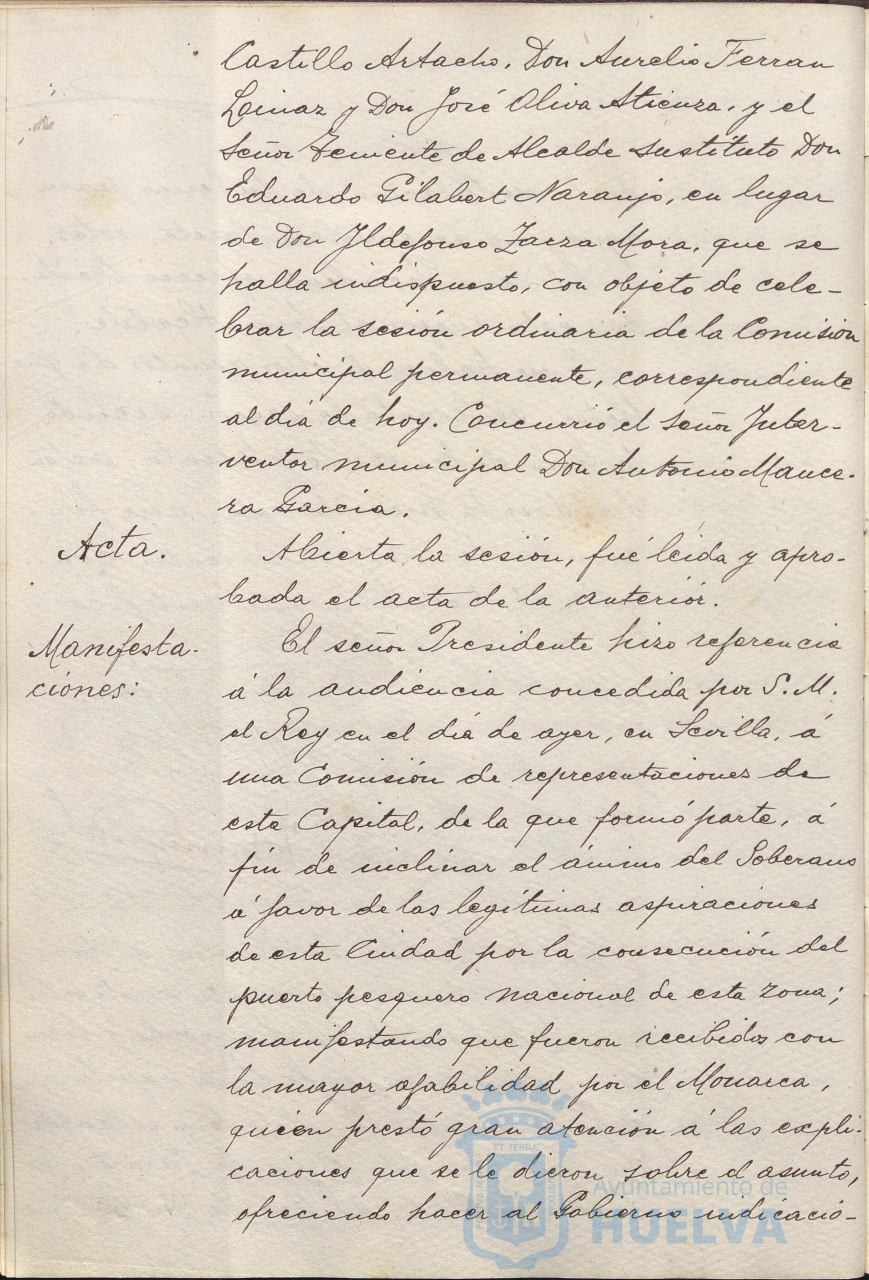 Castillo Artacho, Don Aurelio Ferran
Lainaz y Don José Oliva Atienza, y el
Señor Teniente de Alcalde sustituto Don
Eduardo Gilabert Naranjo, en lugar
de Don Yldefonso Zarza Mora, que se
halla indispuesto, con objeto de cele-
brar la sesión ordinaria de la Comisión
municipal permanente, correspondiente
al día de hoy. Concurrió el Señor Inter-
ventor municipal Don Antonio Mance-
ra Garcia.
Acta.
Abierta la sesión, fué leida y apro-
bada el acta de la anterior.
Manifesta-
ciones:
El señor Presidente hizo referencia
á la audiencia concedida por S. M.
el Rey en el día de ayer, en Sevilla, á
una Comisión de representaciones de
esta Capital, de la que formó parte, á
fin de inclinar el ánimo del Soberano
á favor de las legítimas aspiraciones
de esta Ciudad por la consecución del
puerto pesquero nacional de esta zona;
manifestando que fueron recibidos con
la mayor afabilidad por el Monarca,
quien prestó gran atención á las expli-
caciones que se le dieron sobre el asunto,
ofreciendo hacer al Gobierno indicacio-
ET TERRÆ
Ayuntamiento de
HUELVA